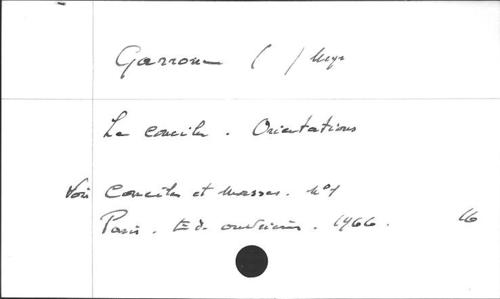 Garrone ( ) Mgr
Le concile. Orientations
Voir Conciles et masses. N°1
Paris. Ed. ouvrières. 1966. 16